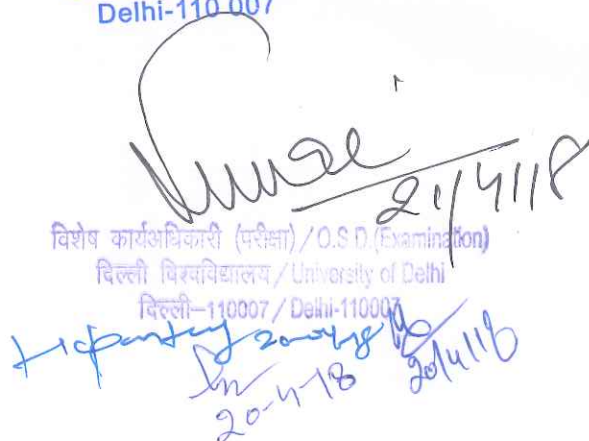 Delhi-110 007
21/4/18
विशेष कार्यअधिकारी (परीक्षा)/O.S.D.(Examination)
दिल्ली विश्वविद्यालय/University of Delhi
दिल्ली-110007/Delhi-110007
20-4-18
20/4/18
20-4-18